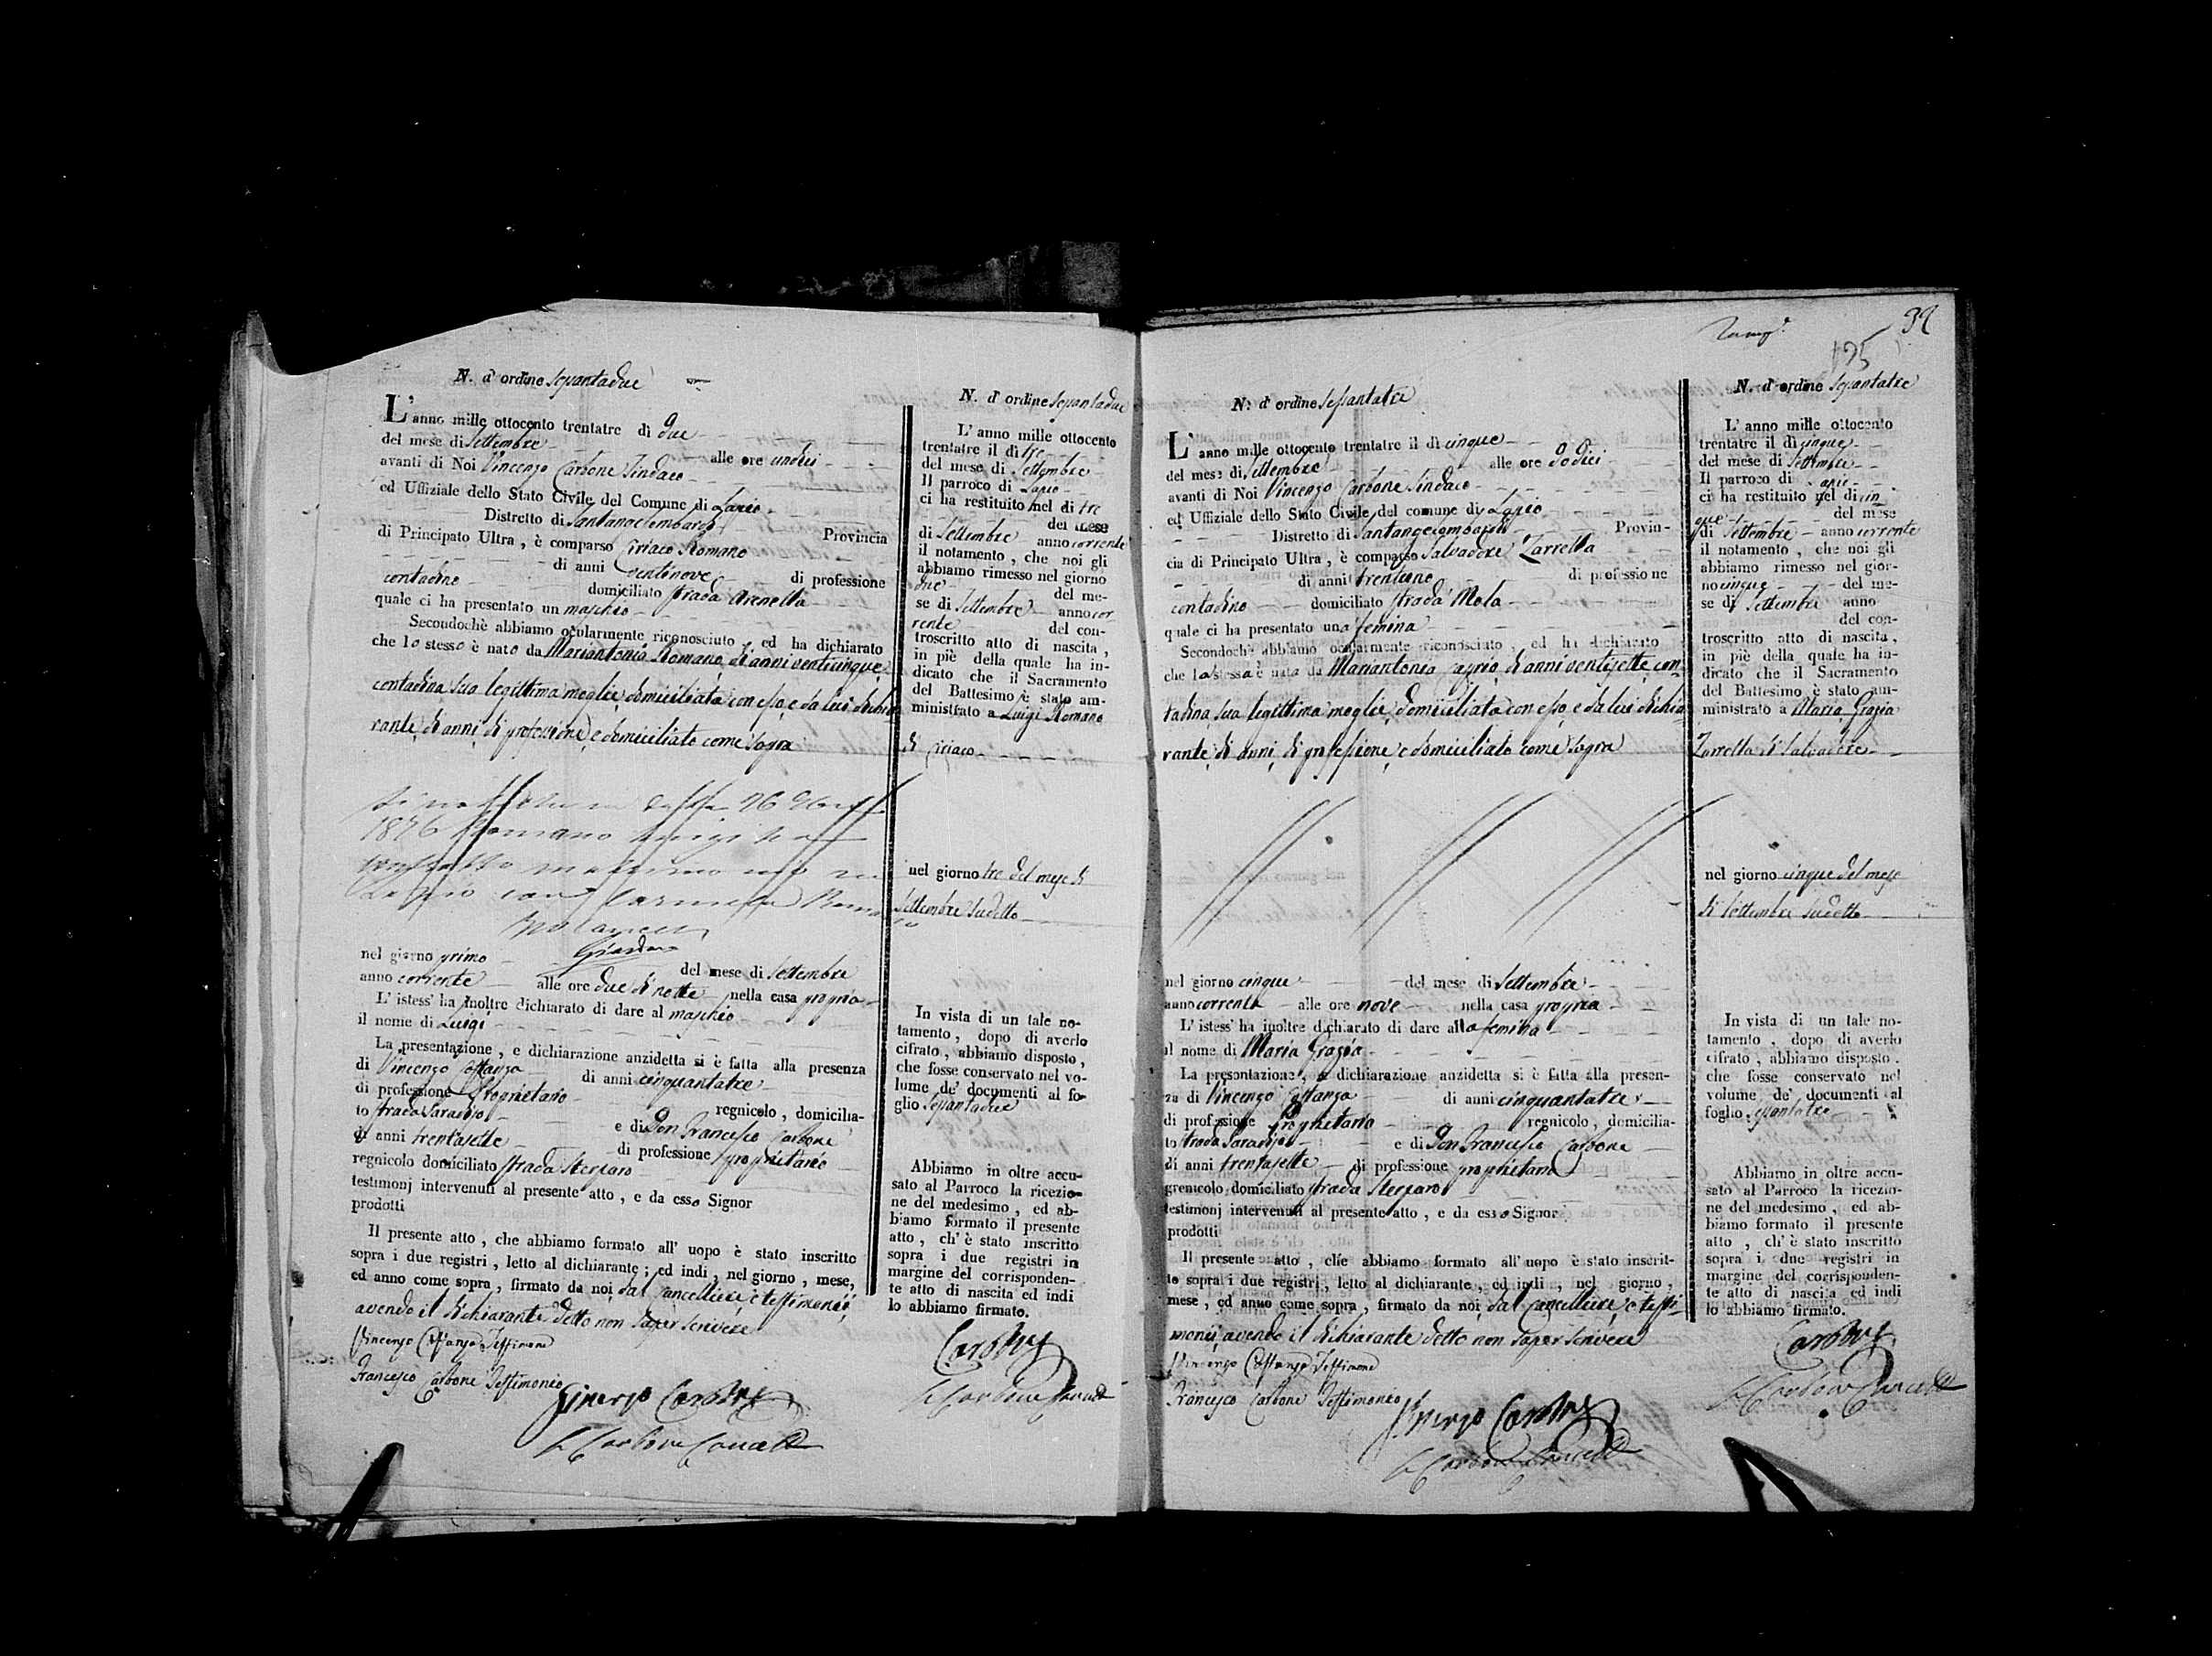 N. d'ordine sessantadue
L'anno mille ottocento trentatre dì due
del mese di Settembre alle ore undici
avanti di Noi Vincenzo Carbone Sindaco
ed Uffiziale dello Stato Civile del Comune di Lapio
Distretto di Santangelombardi Provincia
di Principato Ultra, è comparso Ciriaco Romano
di anni ventinove di professione
contadino domiciliato strada Arenella
quale ci ha presentato un maschio
Secondochè abbiamo ocularmente riconosciuto, ed ha dichiarato
che lo stesso è nato da Mariantonia Romano, di anni venticinque,
contadina sua legittima moglie, domiciliata con esso, e da lui dichia
rante, di anni, di professione, e domiciliato come sopra
1876 Romano Luigi ha
Lapio con Carmela Roma
nel giorno primo del mese di Settembre
anno corrente alle ore due di notte nella casa propria
L'istess' ha inoltre dichiarato di dare al maschio
il nome di Luigi
La presentazione, e dichiarazione anzidetta si è fatta alla presenza
di Vincenzo Costanza di anni cinquantatre
di professione Proprietario regnicolo, domicilia-
to strada Paradiso e di Don Francesco Carbone
di anni trentasette di professione proprietario
regnicolo domiciliato strada Sterparo
testimonj intervenuti al presente atto, e da esso Signor
prodotti
Il presente atto, che abbiamo formato all' uopo è stato inscritto
sopra i due registri, letto al dichiarante; ed indi, nel giorno, mese,
ed anno come sopra, firmato da noi, dal Cancelliere, e testimonii,
avendo il dichiarante detto non saper scrivere
Vincenzo Costanza Testimone
Francesco Carbone Testimonio
Vincenzo Carbone
Carbone Cancell
N. d'ordine sessantadue
L'anno mille ottocento
trentatre il dì tre
del mese di Settembre
Il parroco di Lapio
ci ha restituito nel dì tre
del mese
di Settembre anno corrente
il notamento, che noi gli
abbiamo rimesso nel giorno
due del me-
se di Settembre anno cor
rente del con-
troscritto atto di nascita,
in piè della quale ha in-
dicato che il Sacramento
del Battesimo è stato am-
ministrato a Luigi Romano
di Ciriaco
nel giorno tre del mese di
Settembre sudetto
In vista di un tale no-
tamento, dopo di averlo
cifrato, abbiamo disposto,
che fosse conservato nel vo-
lume de' documenti al fo-
glio sessantadue
Abbiamo in oltre accu-
sato al Parroco la ricezio-
ne del medesimo, ed ab-
biamo formato il presente
atto, ch' è stato inscritto
sopra i due registri in
margine del corrisponden-
te atto di nascita ed indi
lo abbiamo firmato.
Carbone
Carbone Cancell
32
125
N. d'ordine sessantatre
L'anno mille ottocento trentatre il dì cinque
del mese di Settembre alle ore dodici
avanti di Noi Vincenzo Carbone Sindaco
ed Uffiziale dello Stato Civile del comune di Lapio
Distretto di Santangelombardi Provin-
cia di Principato Ultra, è comparso Salvadore Zarrella
di anni trentuno di professione
contadino domiciliato strada Mola
quale ci ha presentato una femina
Secondochè abbiamo ocularmente riconosciuto, ed ha dichiarato
che la stessa è nata da Mariantonia Caprio, di anni ventisette, con-
tadina, sua legittima moglie, domiciliata con esso, e da lui dichia-
rante, di anni, di professione, e domiciliato come sopra
nel giorno cinque del mese di Settembre
anno corrente alle ore nove nella casa propria
L'istess' ha inoltre dichiarato di dare alla femina
il nome di Maria Grazia
La presentazione, e dichiarazione anzidetta si è fatta alla presen-
za di Vincenzo Costanza di anni cinquantatre
di professione Proprietario regnicolo, domicilia-
to strada Paradiso e di Don Francesco Carbone
di anni trentasette di professione proprietario
grenicolo domiciliato strada Sterparo
testimonj intervenuti al presente atto, e da esso Signor
prodotti
Il presente atto, che abbiamo formato all' uopo è stato inscrit-
to sopra i due registri, letto al dichiarante, ed indi, nel giorno,
mese, ed anno come sopra, firmato da noi, dal Cancelliere, e testi-
monii, avendo il dichiarante detto non saper scrivere
Vincenzo Costanza Testimone
Francesco Carbone Testimonio
Vincenzo Carbone
Carbone Cancell
N. d'ordine sessantatre
L'anno mille ottocento
trentatre il dì cinque
del mese di Settembre
Il parroco di Lapio
ci ha restituito nel dì cin
que del mese
di Settembre anno corrente
il notamento, che noi gli
abbiamo rimesso nel gior-
no cinque del me-
se di Settembre anno
del con-
troscritto atto di nascita,
in piè della quale ha in-
dicato che il Sacramento
del Battesimo è stato am-
ministrato a Maria Grazia
Zarrella di Salvadore
nel giorno cinque del mese
di Settembre sudetto
In vista di un tale no-
tamento, dopo di averlo
cifrato, abbiamo disposto,
che fosse conservato nel
volume de' documenti al
foglio sessantatre
Abbiamo in oltre accu-
sato al Parroco la ricezio-
ne del medesimo, ed ab-
biamo formato il presente
atto, ch' è stato inscritto
sopra i due registri in
margine del corrisponden-
te atto di nascita ed indi
lo abbiamo firmato.
Carbone
Carbone Cancell